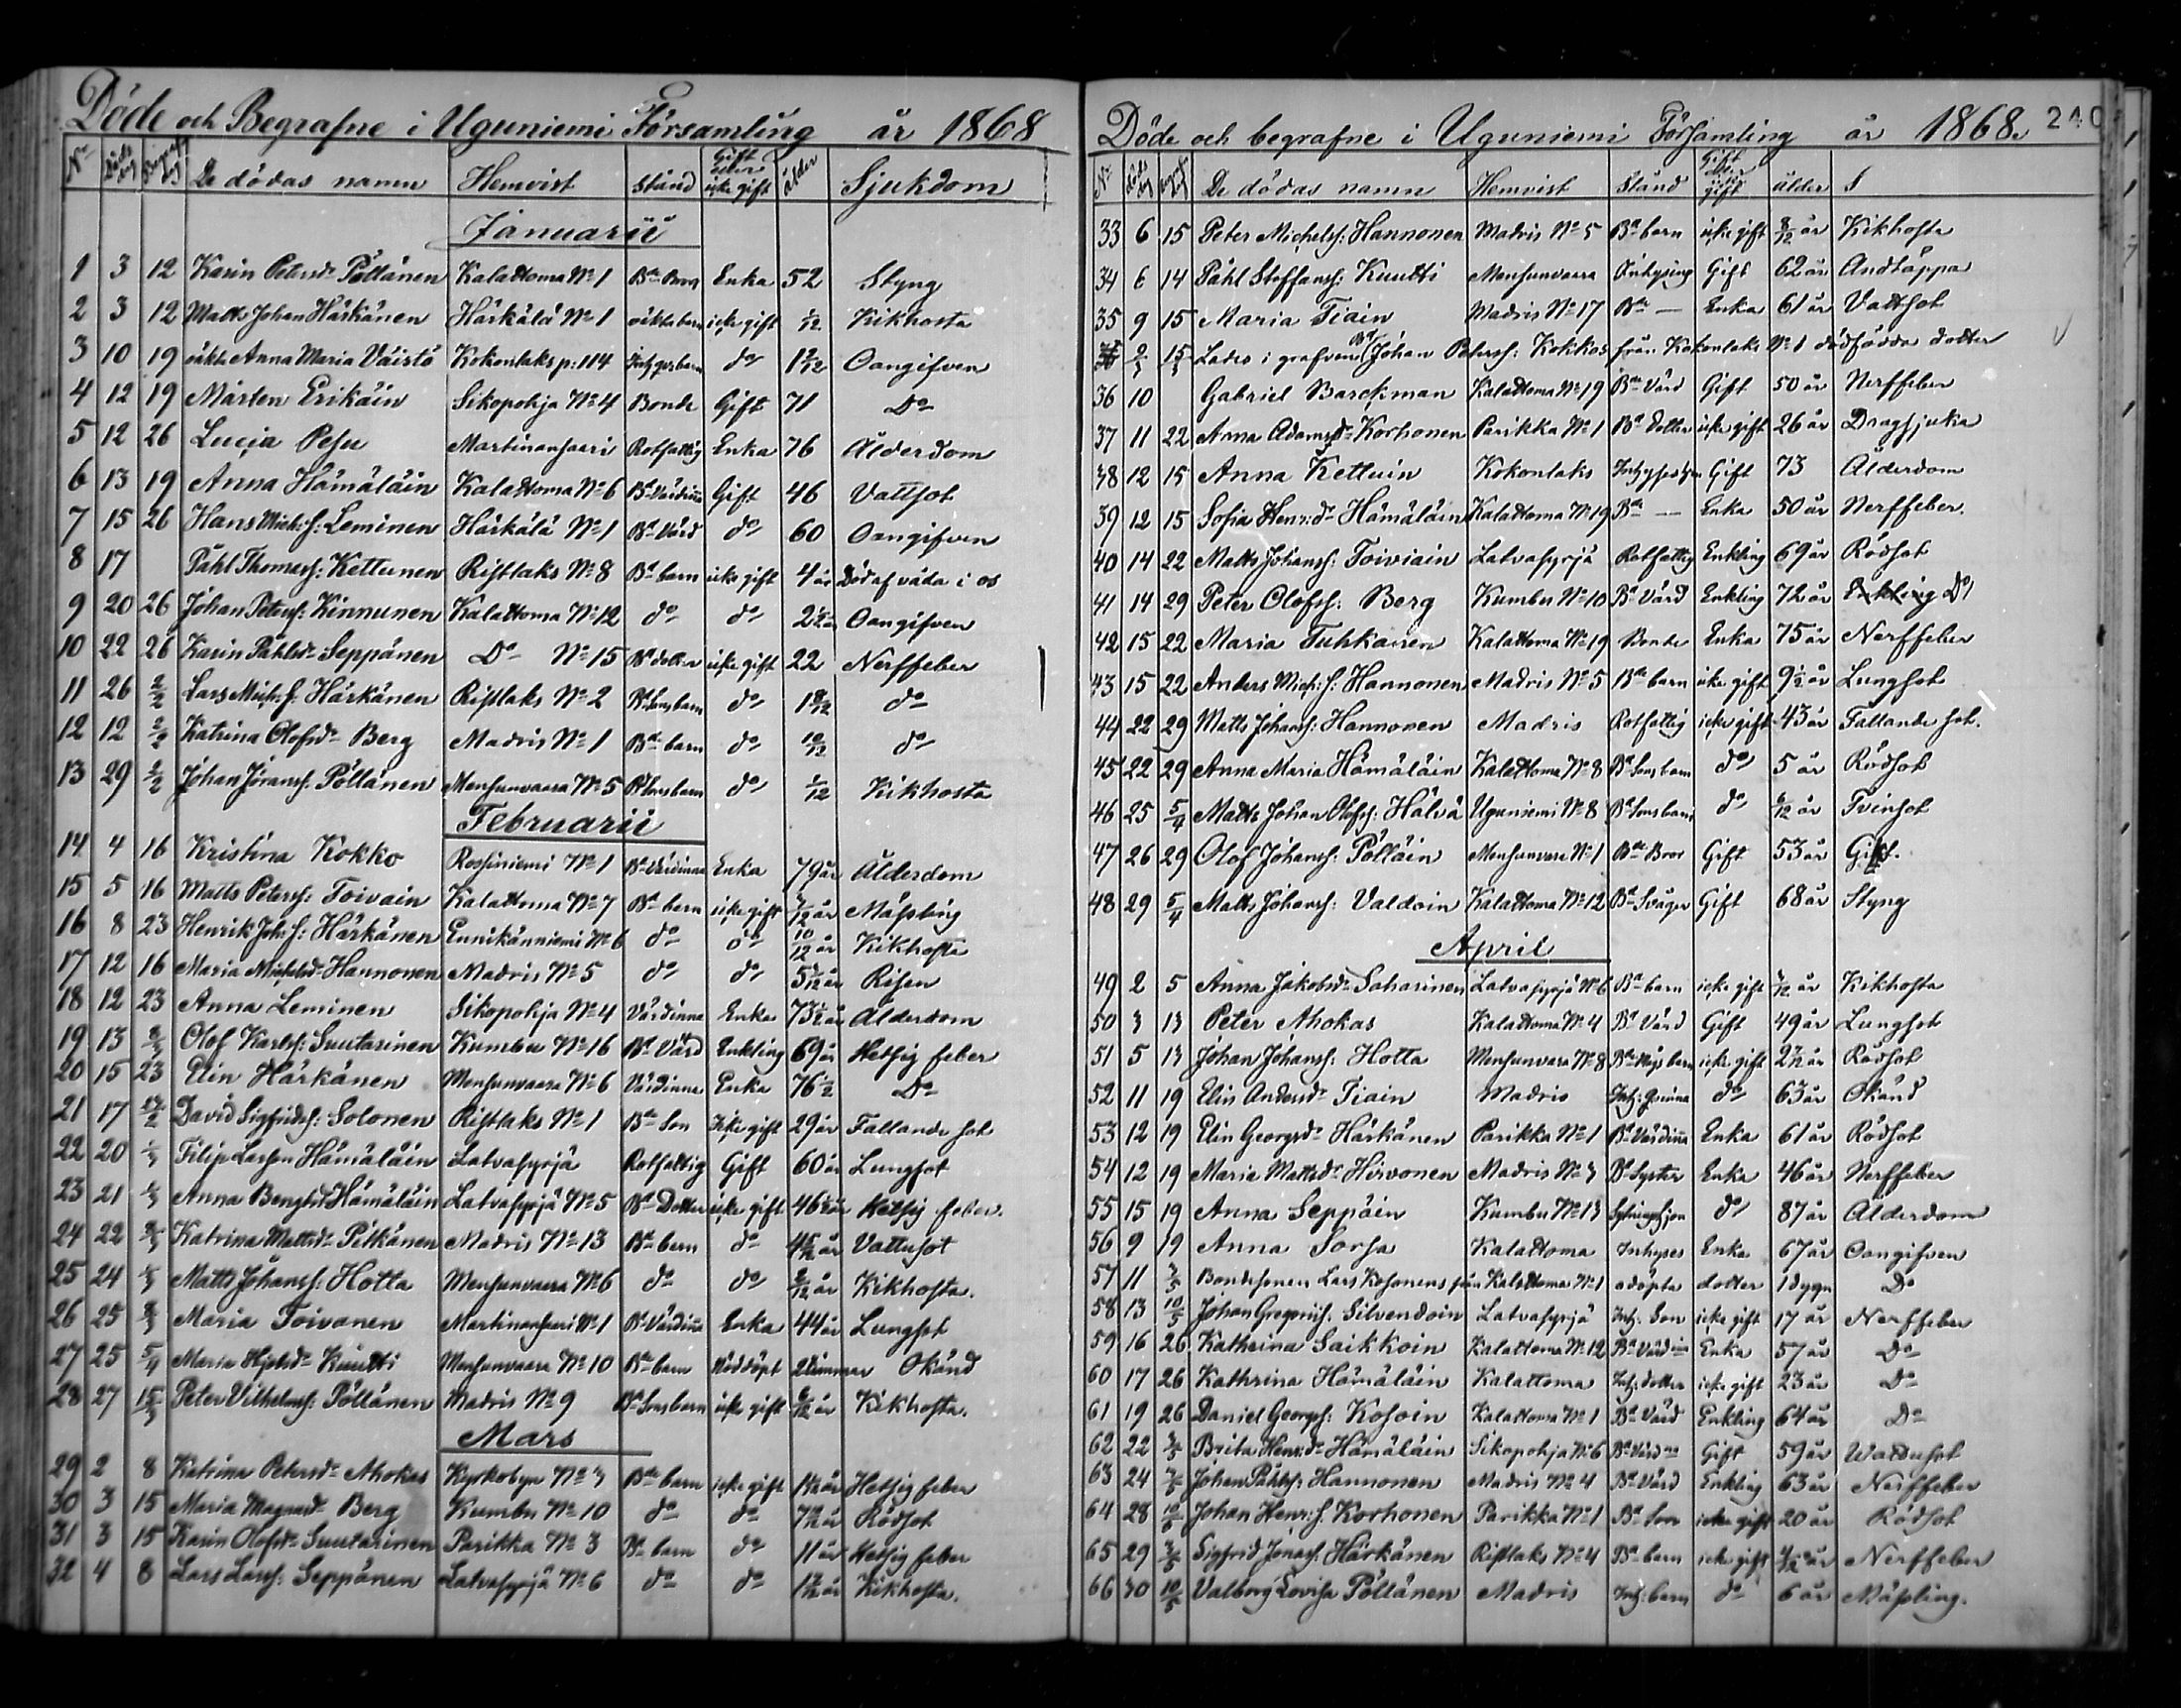 Döde och Begrafne i Uguniemi Församling år 1868
No Döds dag Begrafn. dag De dödas namn Hemvist Stånd Gift eller icke gift ålder Sjukdom
Januarii
1 3 12 Karin Petersdr Pöllänen Kalattoma No 1 Enka 52 Styng
2 3 12 Matts Johan Härkänen Härkälä No 1 oäkta barn icke gift 1/12 Kikhosta
3 10 19 oäkta Anna Maria Väistö Kokonlaks p: 114 do 1 2/12 Oangifven
4 12 19 Mårten Erikäin Sikopohja No 4 Bonde Gift 71 Do
5 12 26 Lucia Pesu Martinansaari Rotfattig Enka 76 Ålderdom
6 13 19 Anna Hämäläin Kalattoma No 6 Bde Värdinna Gift 46 Vattsot
7 15 26 Hans Mich: s: Leminen Härkälä No 1 Bde Värd do 60 Oangifven
8 17 Påhl Thomass: Kettunen Ristlaks No 8 Bde barn icke gift 4 år Död af våda i os
9 20 26 Johan Peterss: Kinnunen Kalattoma No 12 do do 2 1/2 år Oangifven
10 22 26 Karin Påhlsdr Seppänen Do No 15 Bde dotter icke gift 22 Nerffeber
11 26 2/2 Lars Mich: s: Härkänen Ristlaks No 2 Bde Sons barn do 1 8/12 do
12 12 2/2 Katrina Olofsdr Berg Madris No 1 Bde barn do 10/12 do
13 29 2/2 Johan Jöranss: Pöllänen Mensunvaara No 5 Bde Sons barn do 1/12 Kikhosta
Februarii
14 4 16 Kristina Kokko Rossiniemi No 1 Bde Värdinna Enka 79 år Ålderdom
15 5 16 Matts Peterss: Toivain Kalattoma No 7 Bde barn icke gift /12 år Mässling
16 8 23 Henrik Joh: s: Härkänen Ennikänniemi No 6 do do 10/12 år Kikhosta
17 12 16 Maria Michelsdr Hannonen Madris No 5 do do Risen
18 12 23 Anna Leminen Sikopohja No 4 Värdinna Enka 73 1/2 år Ålderdom
19 13 Olof Karlss: Suutarinen Kumbu No 16 Bde Värd Enkling 69 år Hetsig feber
20 15 23 Elin Härkänen Mensunvaara No 6 Värdinna Enka 76 1/2 Do
21 17 David Sigfridss: Solonen Ristlaks No 1 Bde Son Icke gift 29 år Fallande sot
22 20 1/3 Filip Larsson Hämäläin Latvasyrjä Rotfattig Gift 60 år Lungsot
23 21 1/3 Anna Bengtsdr Hämäläin Latvasyrjä No 5 Bde Dotter icke gift 46 år Hetsig feber.
24 22 Katrina Mattsdr Pitkänen Madris No 13 Bde barn do Vattusot
25 24 Matts Johanss: Hotta Mensunvaara No 6 do do /12 år Kikhosta.
26 25 Maria Toivanen Martinansaari No 1 Bde Värdinna Enka 44 år Lungsot
27 25 5/4 Maria Kuutti Mensunvaara No 10 Bde barn Nöddöpt 2 timmar Okänd
28 27 15/3 Peter Vilhelmss: Pöllänen Madris No 9 Bde Sons barn icke gift /12 år Kikhosta.
Mars
29 2 8 Katrina Petersdr Ahokas Kyrkobyn No 3 Bde barn icke gift Hetsig feber
30 3 15 Maria Magnusdr Berg Kumbu No 10 do do Rödsot
31 3 15 Karin Olofsdr Suutarinen Parikka No 3 Bde barn do 11 år Hetsig feber
32 4 8 Lars Larss: Seppänen Latvasyrjä No 6 do do Kikhosta.
Döde och begrafne i Uguniemi Församling år 1868. 240
No döds dag De dödas namn Hemvist Stånd Gift eller icke gift ålder S
33 6 15 Peter Michelss: Hannonen Madris No 5 Bde barn icke gift /12 år Kikhosta
34 6 14 Påhl Steffanss: Kuutti Mensunvaara Inhysing Gift 62 år Andtäppa
35 9 15 Maria Tiain Madris No 17 Bde — Enka 61 år Vattsot
Lades i grafven Johan Peterss: Kokkos från Kokonlaks No 1 dödfödda dotter
36 10 Gabriel Barckman Kalattoma No 19 Bde Värd Gift 50 år Nerffeber
37 11 22 Anna Adamsdr Korhonen Parikka No 1 Bde Dotter icke gift 26 år Dragsjuka
38 12 15 Anna Kettuin Kokonlaks Gift 73 Ålderdom
39 12 15 Sofia Henr:dr Hämäläin Kalattoma No 19 Bde — Enka 50 år Nerffeber.
40 14 22 Matts Johanss: Toiviain Latvasyrjä Rotfattig Enkling 69 år Rödsot
41 14 29 Peter Olofss: Berg Kumbu No 10 Bde Värd Enkling 72 år Enkling Do
42 15 22 Maria Tuhkanen Kalattoma No 19 Bonde Enka 75 år Nerffeber
43 15 22 Anders Mich: s: Hannonen Madris No 5 Bde barn icke gift 9 1/2 år Lungsot
44 22 29 Matts Johanss: Hannonen Madris Rotfattig icke gift 43 år Fallande sot.
45 22 29 Anna Maria Hämäläin Kalattoma No 8 Bde Sons barn do 5 år Rödsot
46 25 5/4 Matts Johan Olofss: Halva Uguniemi No 8 Bde Sons barn do /12 år Tvinsot
47 26 29 Olof Johanss: Pölläin Mensunvara No 1 Bde Bror Gift 53 år
48 29 5/4 Matts Johanss: Valdoin Kalattoma No 12 Bde Svåger Gift 68 år Styng
April
49 2 5 Anna Jakobsdr Saharinen Latvasyrjä No 6 Bde barn icke gift /12 år Kikhosta
50 3 13 Peter Ahokas Kalattoma No 4 Bde Värd Gift 49 år Lungsot
51 5 13 Johan Johanss: Hotta Mensunvara No 8 Bde barn icke gift 2 1/2 år Rödsot
52 11 19 Elin Andersdr Tiain Madris do 63 år Okänd
53 12 19 Elin Georgsdr Härkänen Parikka No 1 Bde Värdinna Enka 61 år Rödsot
54 12 19 Maria Mattsdr Hirvonen Madris No 3 Bde Syster Enka 46 år Nerffeber
55 15 19 Anna Seppäin Kumbu No 13 Sytningshjon do 87 år Ålderdom
56 9 19 Anna Sorsa Kalattoma Inhyses Enka 67 år Oangifven
57 11 3/5 Bondesonen Lars Kosonens från Kalattoma No 1 odöpta dotter 1 dygn Do
58 13 10/5 Johan Gregoriis: Silvendoin Latvasyrjä Inh: Son icke gift 17 år Nerffeber
59 16 26 Kathrina Saikkoin Kalattoma No 12 Bde Värdinna Enka 57 år Do
60 17 26 Kathrina Hämäläin Kalattoma Inh: dotter icke gift 23 år Do
61 19 26 Daniel Georgss: Kosoin Kalattoma No 1 Bde Värd Enkling 64 år Do
62 22 3/5 Brita Henr:dr Hämäläin Sikopohja No 6 Bde Värdna Gift 59 år Wattusot
63 24 3/5 Johan Påhlss: Hannonen Madris No 4 Bde Värd Enkling 63 år Nerffeber
64 28 10/5 Johan Henr: s: Korhonen Parikka No 1 Bde Son icke gift 20 år Rödsot
65 29 3/5 Sigfrid Jonass: Härkänen Ristlaks No 4 Bde barn icke gift Nerffeber
66 30 10/5 Valborg Lovisa Pöllänen Madris Inh: barn do 6 år Mässling.